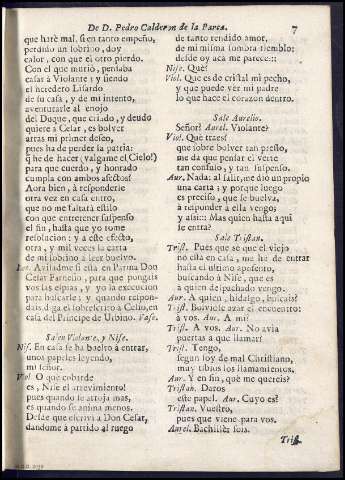 De D. Pedro Calderon de la Barca. 7
que harè mal, si en tanto empeño,
perdido un sobrino, doy
calor, con que el otro pierdo.
Con el que muriò, pensaba
casar à Violante; y siendo
el heredero Lisardo
de su casa, y de mi intento,
aventurarle al enojo
del Duque, que criado, y deudo
quiere à Cesar, es bolver
atràs mi primer deseo,
pues ha de perder la patria:
què he de hacer (valgame el Cielo!)
para que cuerdo, y honrado
cumpla con ambos afectos?
Aora bien, à responderle
otra vez en casa entro,
que no me faltarà estilo
con que entretener suspenso
el fin, hasta que yo tome
resolucion: y à este efecto,
otra, y mil veces la carta
de mi sobrino à leer buelvo.
Lee. Avisadme si està en Parma Don
Cesar Farnesio, para que pongais
vos las espias, y yo la execucion
para buscarle; y quando respondais,
diga el sobrescrito à Celio, en
casa del Principe de Urbino. Vase.
Salen Violante, y Nise.
Nis. En casa se ha buelto à entrar,
unos papeles leyendo,
mi señor.
Viol. O què cobarde
es, Nise, el atrevimiento!
pues quando se arroja mas,
es quando se anima menos.
Desde que escriví à Don Cesar,
dandome à partido al ruego
de tanto rendido amor,
de mi misma sombra tiemblo:
desde oy acà me parece:::
Nise. Què?
Viol. Que es de cristal mi pecho,
y que puede ver mi padre
lo que hace el corazon dentro.
Sale Aurelio.
Señor? Aurel. Violante?
Viol. Què traes?
que sobre bolver tan presto,
me dà que pensar el verte
tan confuso, y tan suspenso.
Aur. Nada: al salir, me diò un propio
una carta; y porque luego
es preciso, que se buelva,
à responder à ella vengo;
y assi::: Mas quien hasta aquì
se entra?
Sale Tristan.
Trist. Pues que se que el viejo
no està en casa, me he de entrar
hasta el ultimo aposento,
buscando à Nise, que es
à quien despachado vengo.
Aur. A quien, hidalgo, buscais?
Trist. Bolviòle azar el encuentro:
à vos. Aur. A mi?
Trist. A vos. Aur. No avia
puertas à que llamar?
Trist. Tengo,
segun soy de mal Christiano,
muy tibios los llamamientos.
Aur. Y en fin, què me quereis?
Tristan. Daros
este papel. Aur. Cuyo es?
Tristan. Vuestro,
pues que viene para vos.
Aurel. Bachiller sois.
Trist.